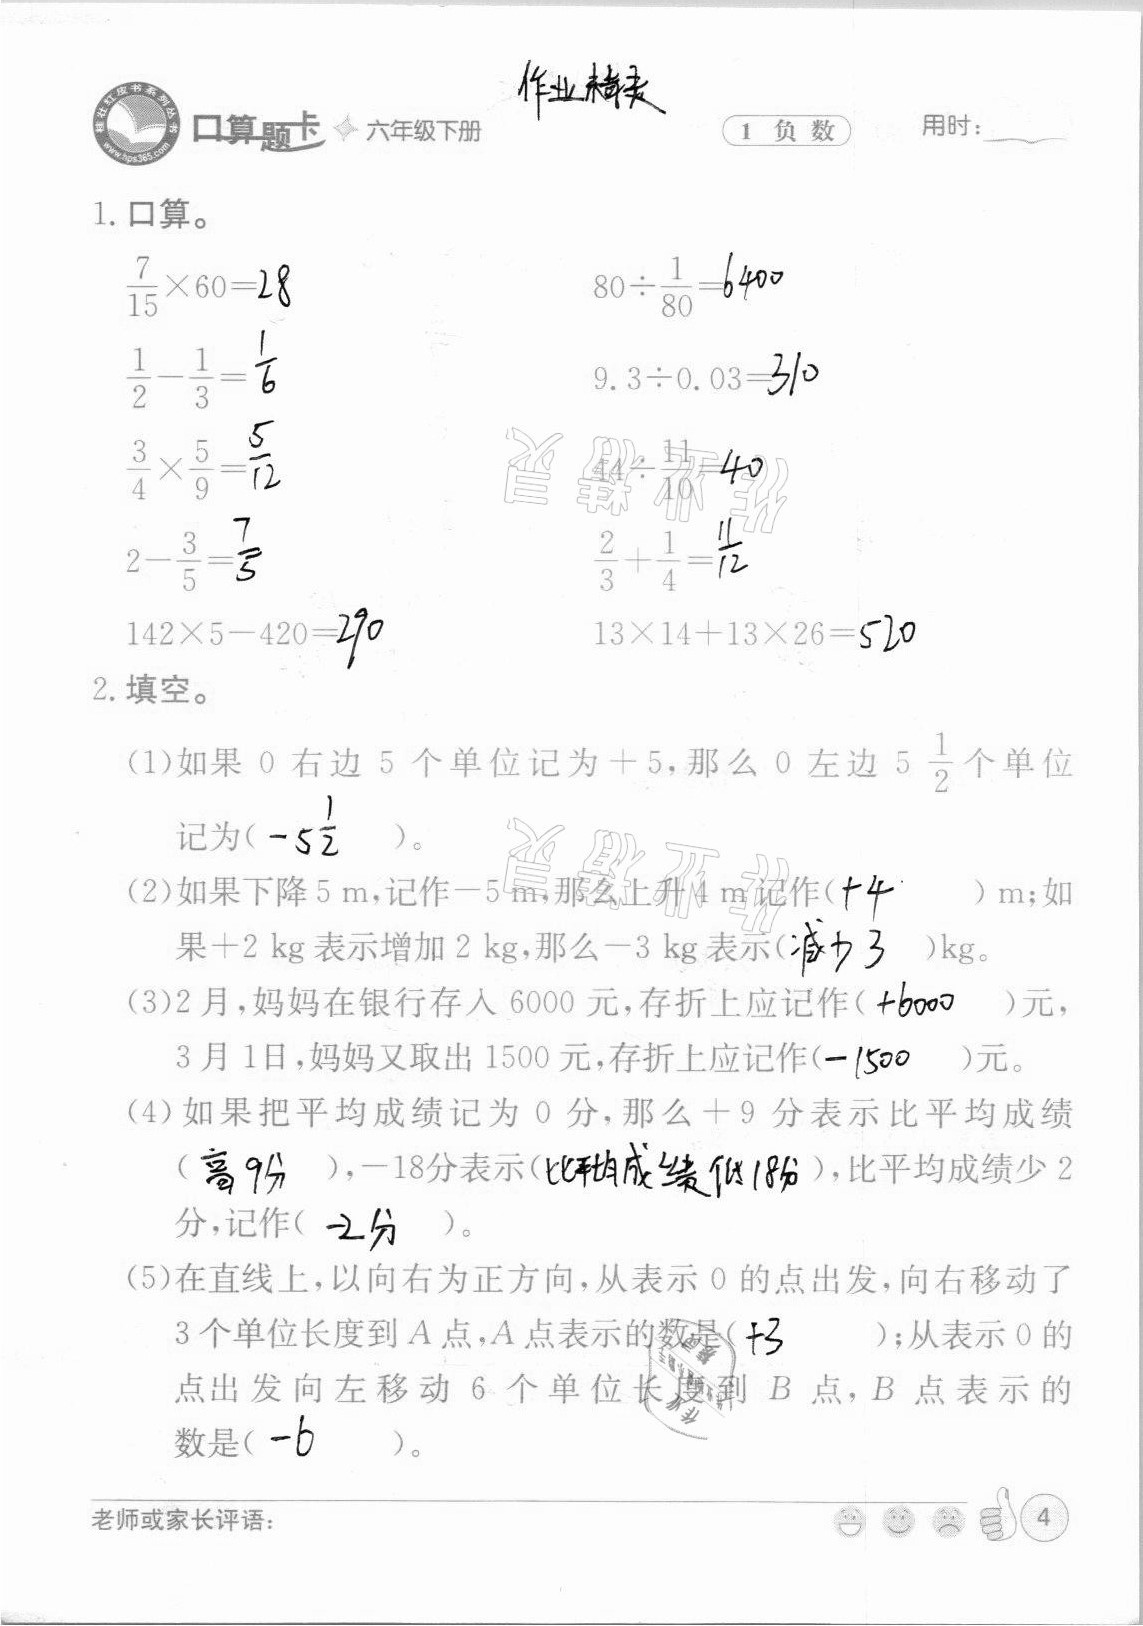 作业精灵
桂壮红皮书系列丛书
www.hps365.com
口算题卡 六年级下册 1 负数 用时：
1. 口算。
7/15×60=28 80÷1/80=6400
1/2-1/3=1/6 9.3÷0.03=310
3/4×5/9=5/12 44÷11/10=40
2-3/5=7/5 2/3+1/4=11/12
142×5-420=290 13×14+13×26=520
2. 填空。
(1)如果 0 右边 5 个单位记为+5,那么 0 左边 5 1/2 个单位
记为( -5 1/2 )。
(2)如果下降5 m,记作-5 m,那么上升4 m记作( +4 ) m;如
果+2 kg表示增加2 kg,那么-3 kg表示( 减少3 )kg。
(3)2月,妈妈在银行存入6000元,存折上应记作( +6000 )元,
3月1日,妈妈又取出1500元,存折上应记作( -1500 )元。
(4)如果把平均成绩记为0分,那么+9分表示比平均成绩
( 高9分 ),-18分表示( 比平均成绩低18分 ),比平均成绩少2
分,记作( -2分 )。
(5)在直线上,以向右为正方向,从表示0的点出发,向右移动了
3个单位长度到A点,A点表示的数是( +3 );从表示0的
点出发向左移动6个单位长度到B点,B点表示的
数是( -6 )。
老师或家长评语: 4
作业精灵
作业精灵